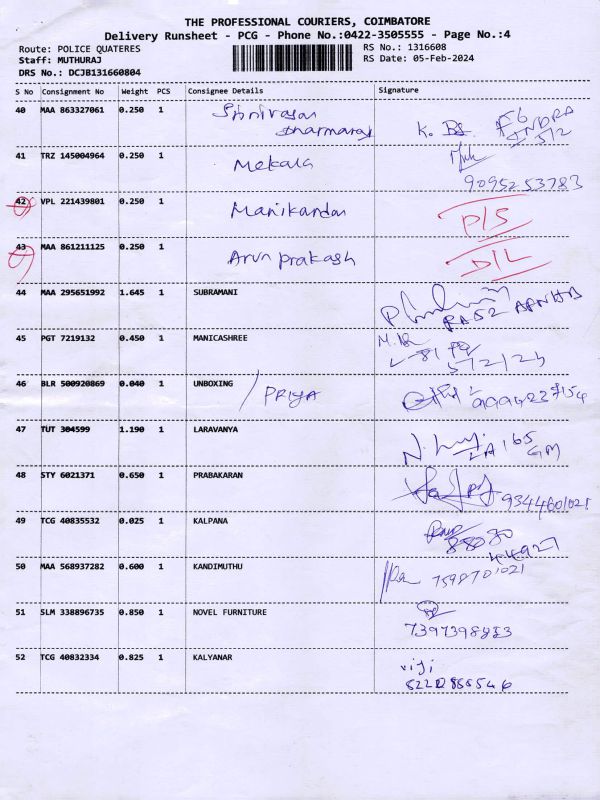 THE PROFESSIONAL COURIERS, COIMBATORE
Delivery Runsheet - PCG - Phone No.:0422-3505555 - Page No.:4
Route: POLICE QUATERES RS No.: 1316608
Staff: MUTHURAJ RS Date: 05-Feb-2024
DRS No.: DCJB131660804
S No Consignment No Weight PCS Consignee Details Signature
40 MAA 863327061 0.250 1 Srinivasan
Dharmaraj K. BS. F56 INDRA 5/2
41 TRZ 145004964 0.250 1 Mekala
9095253783
42 VPL 221439801 0.250 1 Manikandan P/S
43 MAA 861211125 0.250 1 Arun prakash D/L
44 MAA 295651992 1.645 1 SUBRAMANI
45 PGT 7219132 0.450 1 MANICASHREE
5/2/24
46 BLR 500920869 0.040 1 UNBOXING / PRIYA
47 TUT 304599 1.190 1 LARAVANYA
48 STY 6021371 0.650 1 PRABAKARAN 9344601021
49 TCG 40835532 0.025 1 KALPANA
88070
44927
50 MAA 568937282 0.600 1 KANDIMUTHU 7598701021
51 SLM 338896735 0.850 1 NOVEL FURNITURE
52 TCG 40832334 0.825 1 KALYANAR viji